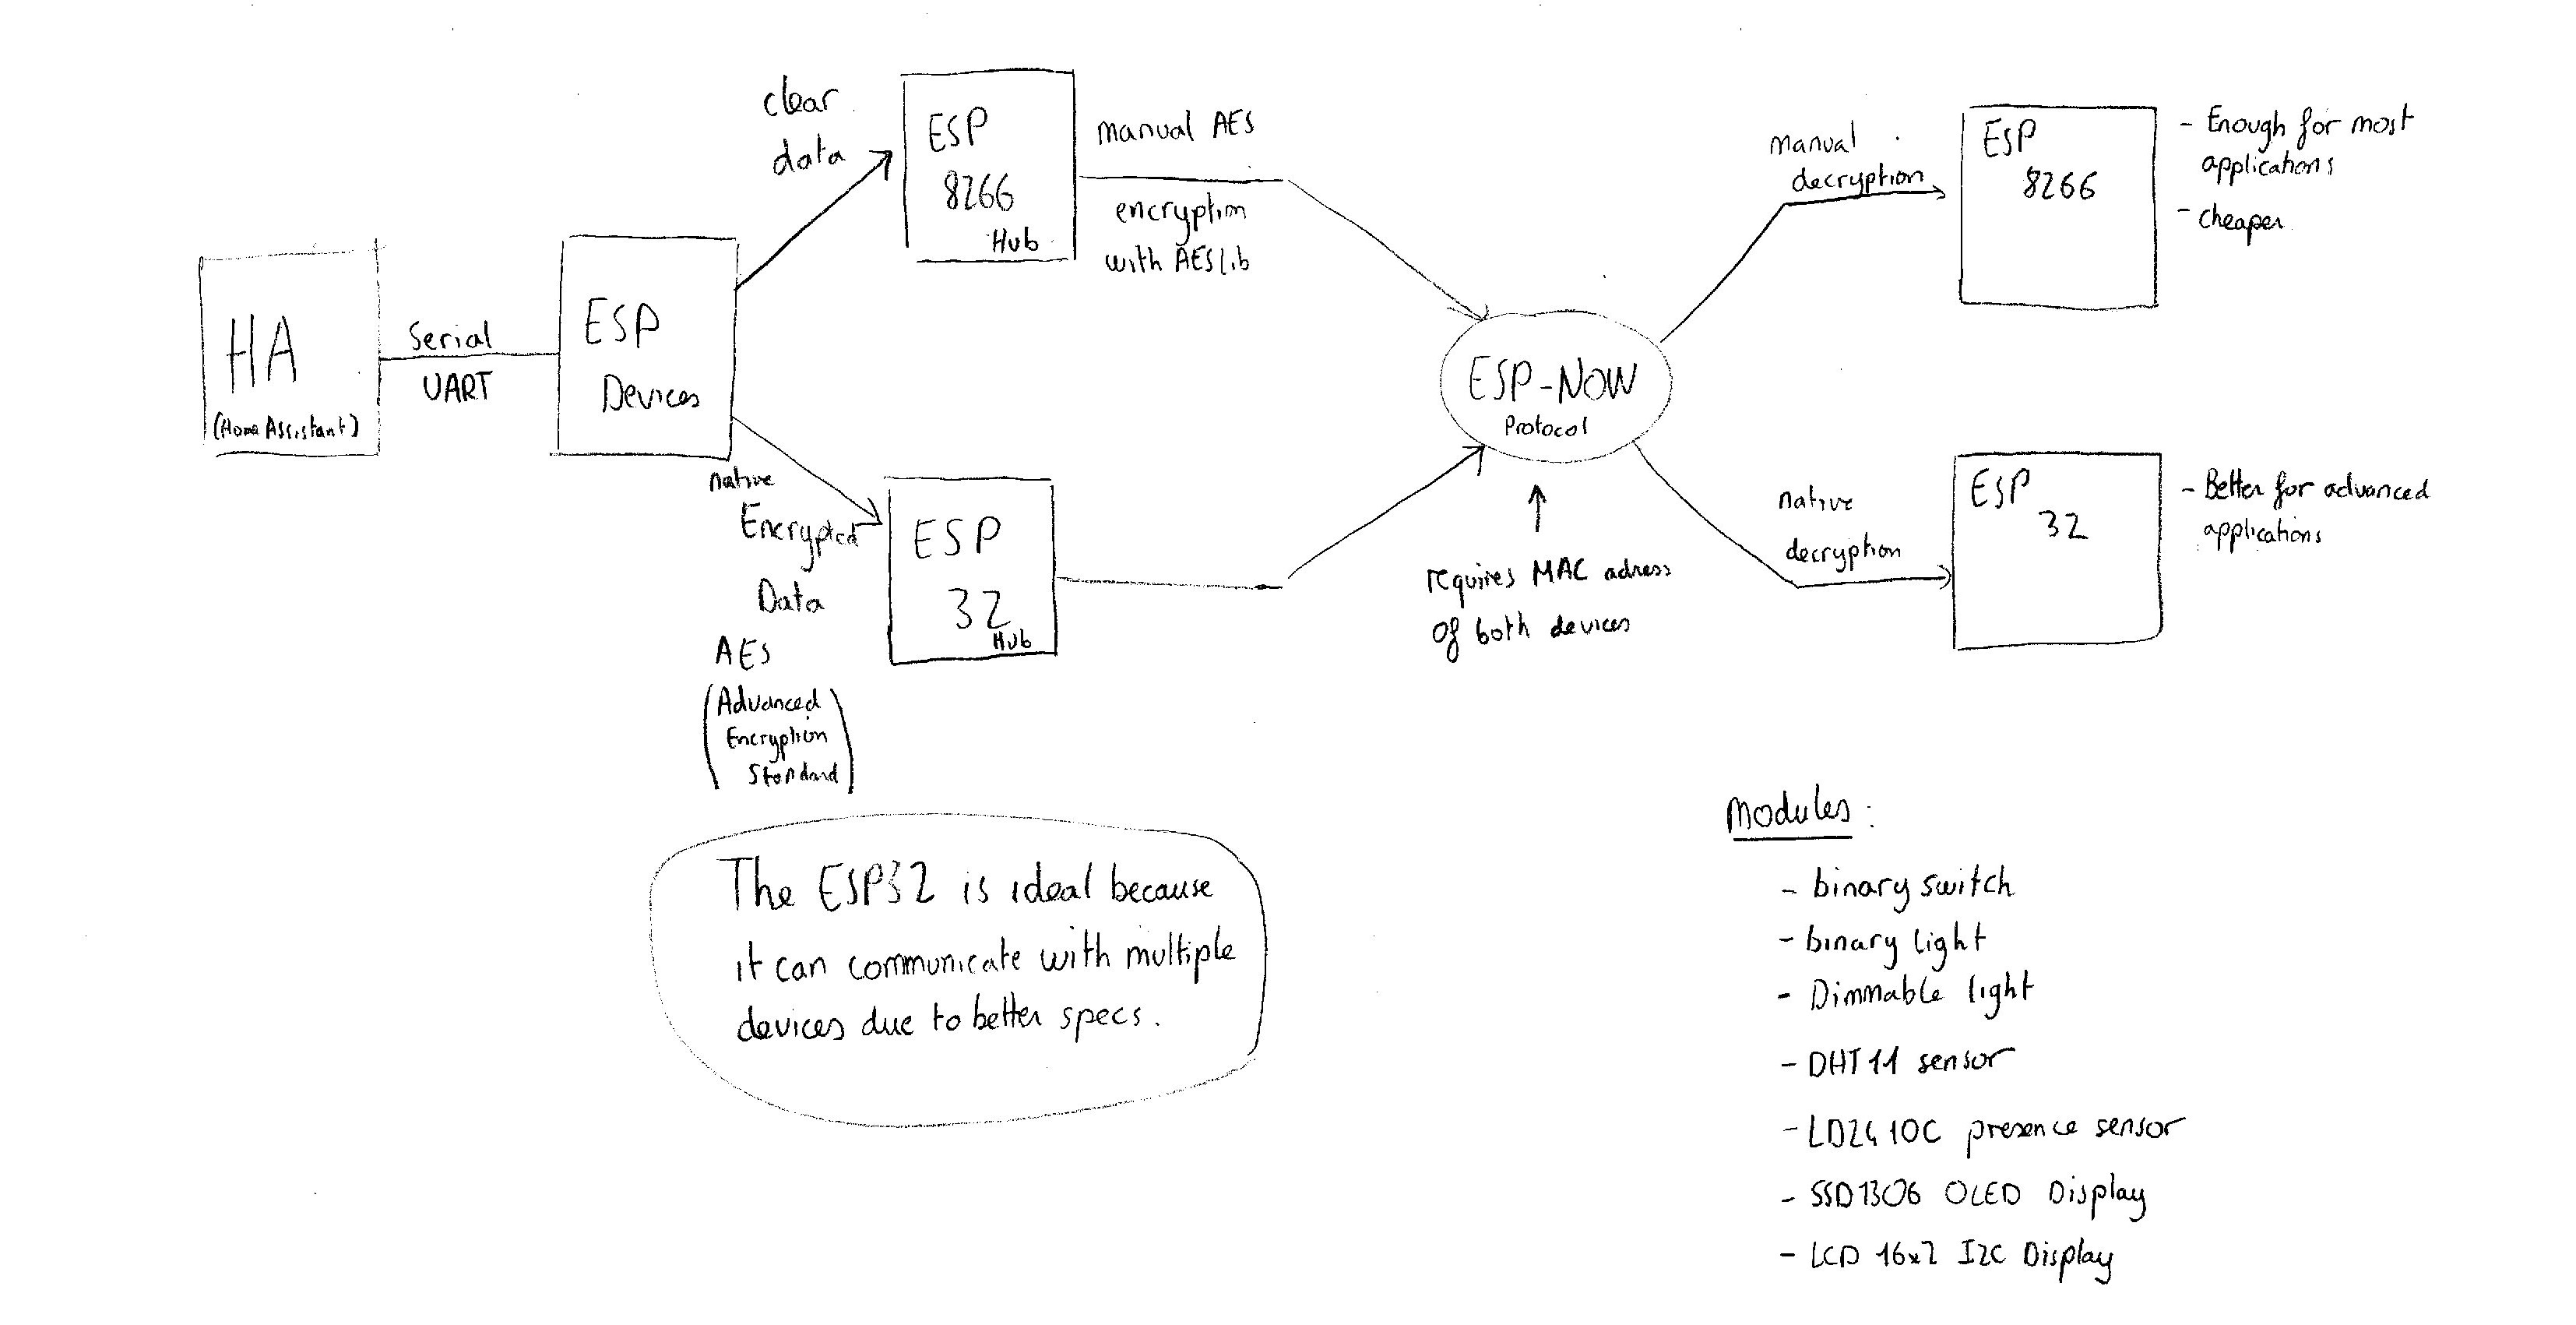 HA
(Home Assistant)
Serial
UART
ESP
Devices
clear
data
ESP
8266
Hub
manual AES
encryption
with AESLib
native
Encrypted
Data
AES
(Advanced
Encryption
Standard)
ESP
32
Hub
ESP-NOW
Protocol
requires MAC adress
of both devices
manual
decryption
ESP
8266
- Enough for most
applications
- cheaper
native
decryption
ESP
32
- Better for advanced
applications
The ESP32 is ideal because
it can communicate with multiple
devices due to better specs.
Modules :
- binary switch
- binary light
- Dimmable light
- DHT11 sensor
- LD2410C presence sensor
- SSD1306 OLED Display
- LCD 16x2 I2C Display